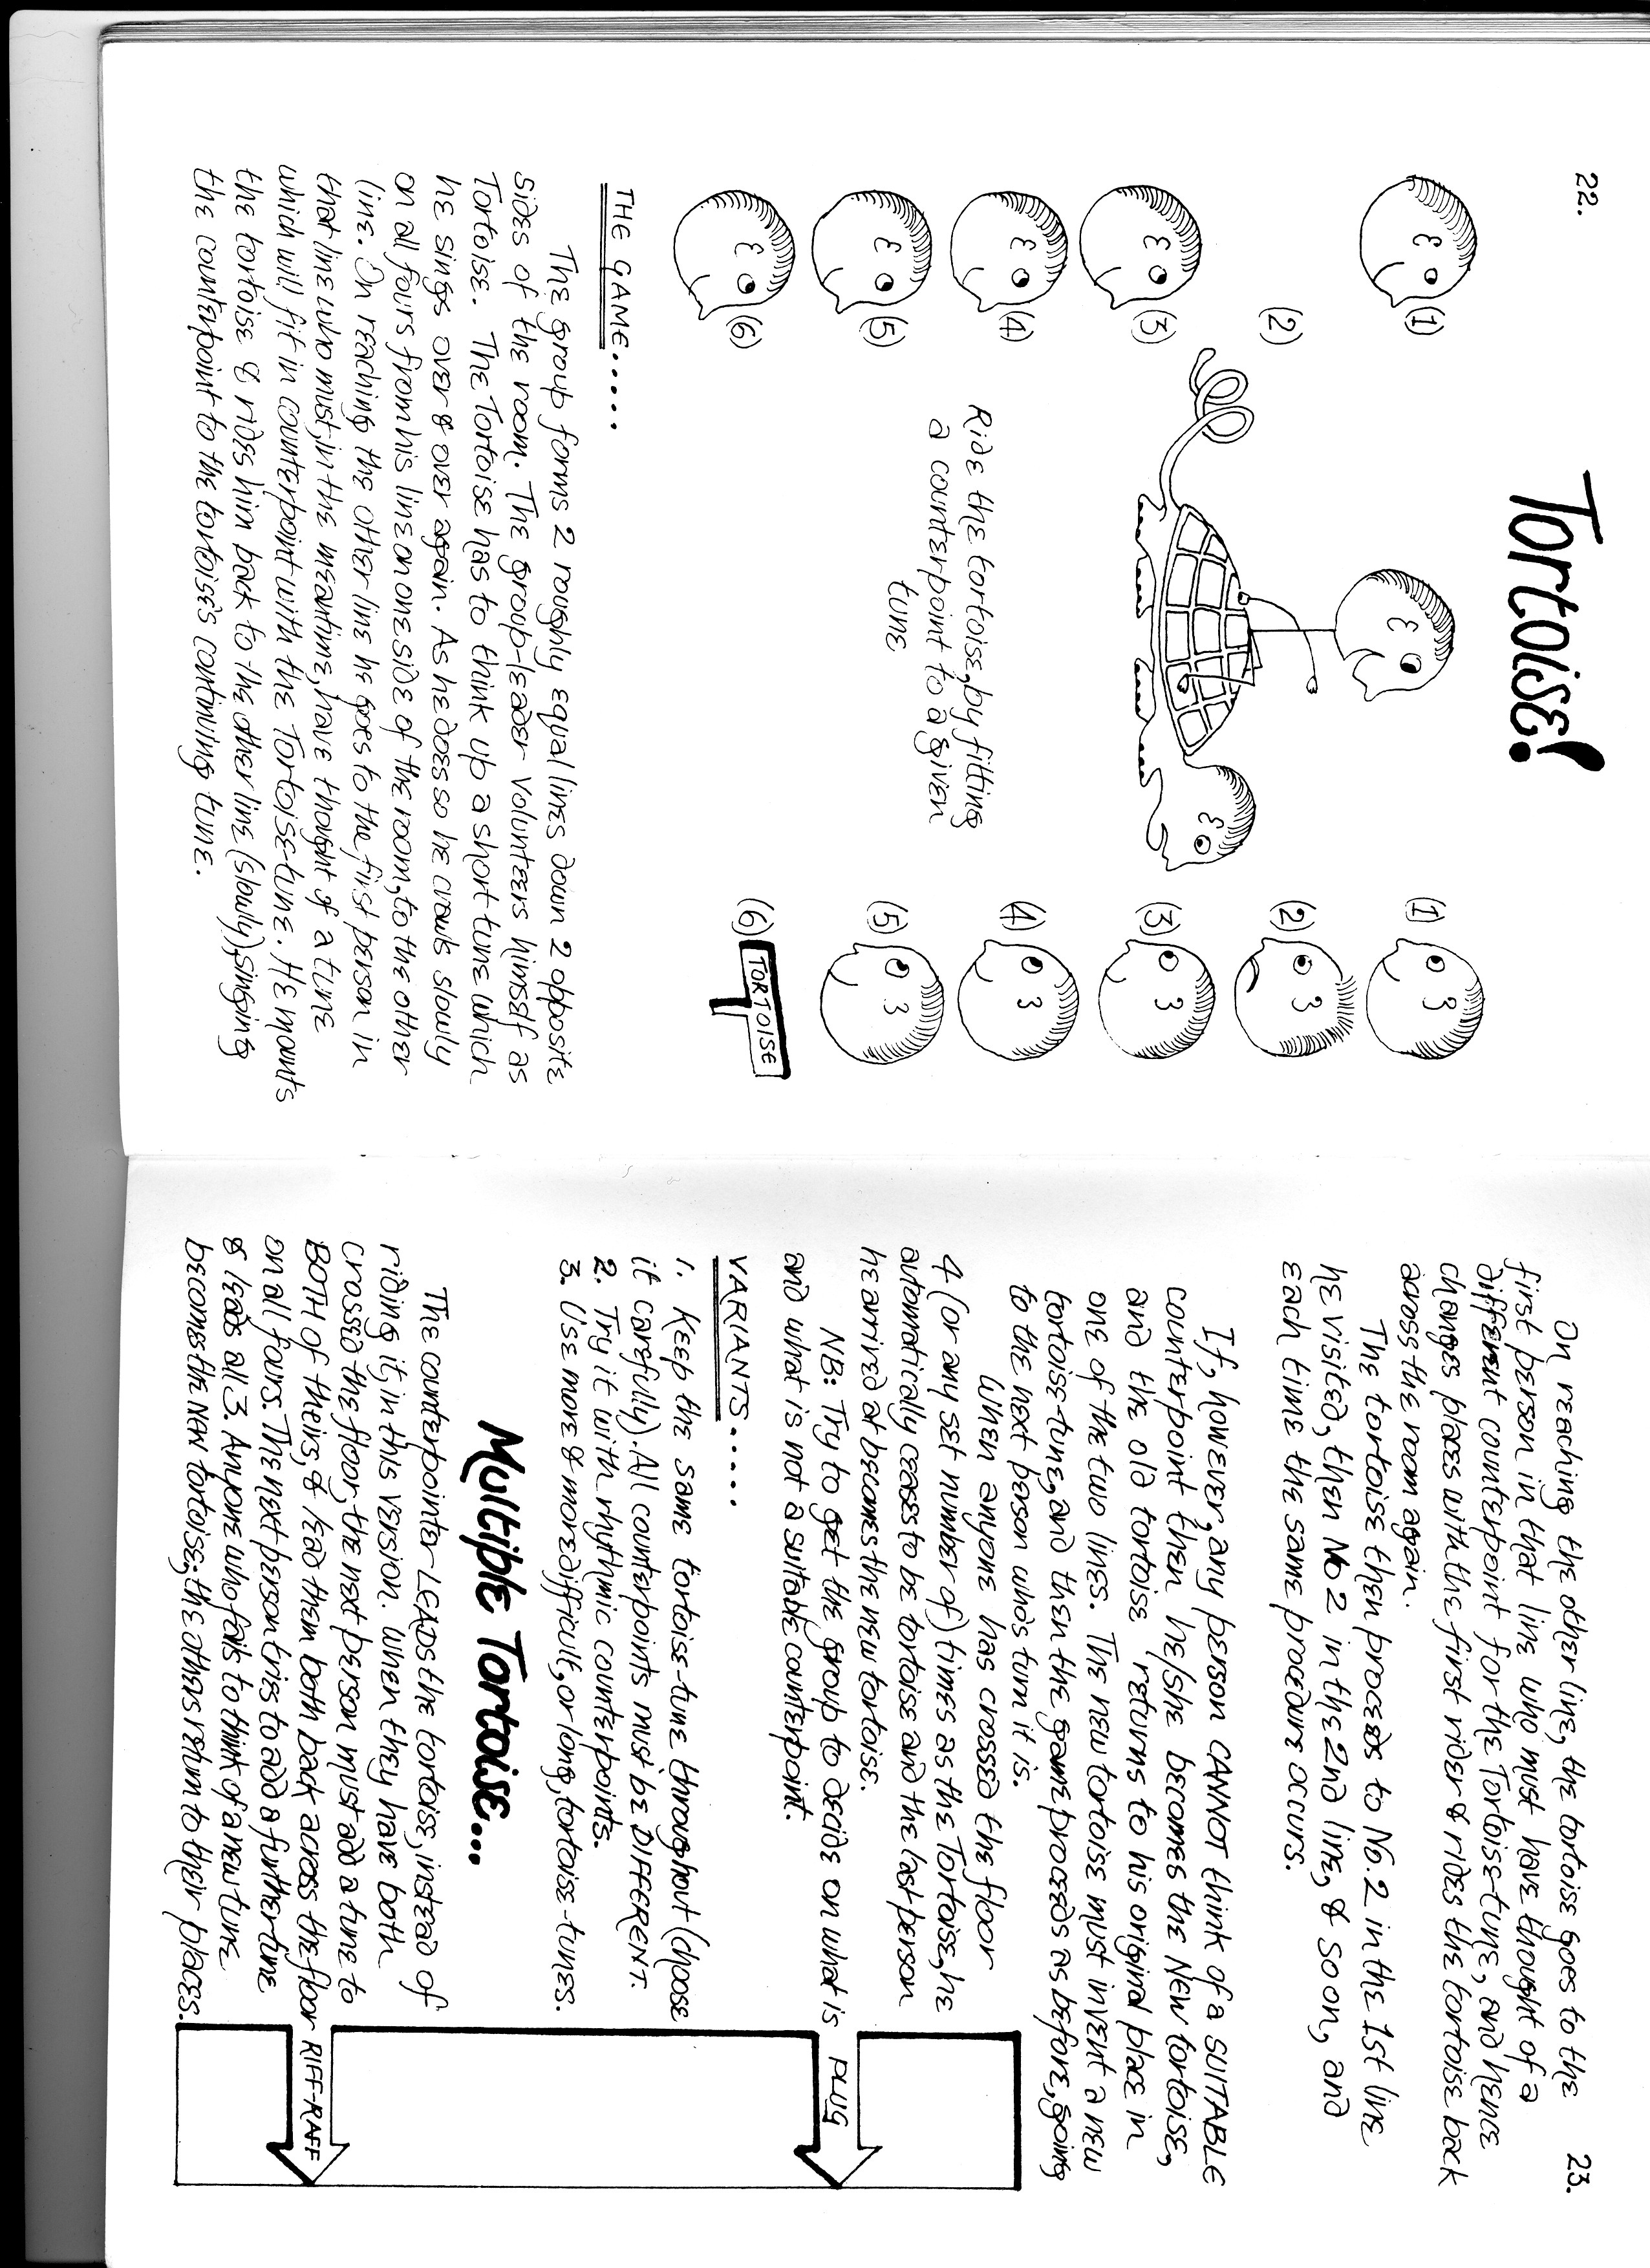 22.
Tortoise!
(1)
(2)
(3)
(4)
(5)
(6)
Ride the tortoise, by fitting
a counterpoint to a given
tune
(1)
(2)
(3)
(4)
(5)
(6)
TORTOISE
THE GAME.....
The group forms 2 roughly equal lines down 2 opposite
sides of the room. The group-leader volunteers himself as
Tortoise. The Tortoise has to think up a short tune which
he sings over & over again. As he does so he crawls slowly
on all fours from his line on one side of the room, to the other
line. On reaching the other line he goes to the first person in
that line who must, in the meantime, have thought of a tune
which will fit in counterpoint with the Tortoise-tune. He mounts
the tortoise & rides him back to the other line (slowly), singing
the counterpoint to the tortoise's continuing tune.
23.
On reaching the other line, the tortoise goes to the
first person in that line who must have thought of a
different counterpoint for the Tortoise-tune, and hence
changes places with the first rider & rides the tortoise back
across the room again.
The tortoise then proceeds to No. 2 in the 1st line
he visited, then No 2 in the 2nd line, & so on, and
each time the same procedure occurs.
If, however, any person CANNOT think of a SUITABLE
counterpoint then he/she becomes the NEW tortoise,
and the old tortoise returns to his original place in
one of the two lines. The new tortoise must invent a new
tortoise-tune, and then the game proceeds as before, going
to the next person who's turn it is.
When anyone has crossed the floor
4 (or any set number of) times as the Tortoise, he
automatically ceases to be tortoise and the last person
he arrived at becomes the new tortoise.
NB: Try to get the group to decide on what is
and what is not a suitable counterpoint.
VARIANTS.....
1. Keep the same tortoise-tune throughout (choose
it carefully). All counterpoints must be DIFFERENT.
2. Try it with rhythmic counterpoints.
3. Use more & more difficult, or long, tortoise-tunes.
Multiple Tortoise...
The counterpointer LEADS the tortoise, instead of
riding it, in this version. When they have both
crossed the floor, the next person must add a tune to
BOTH of theirs, & lead them both back across the floor
on all fours. The next person tries to add a further tune
& leads all 3. Anyone who fails to think of a new tune
becomes the NEW tortoise; the others return to their places.
PLUG
RIFF-RAFF